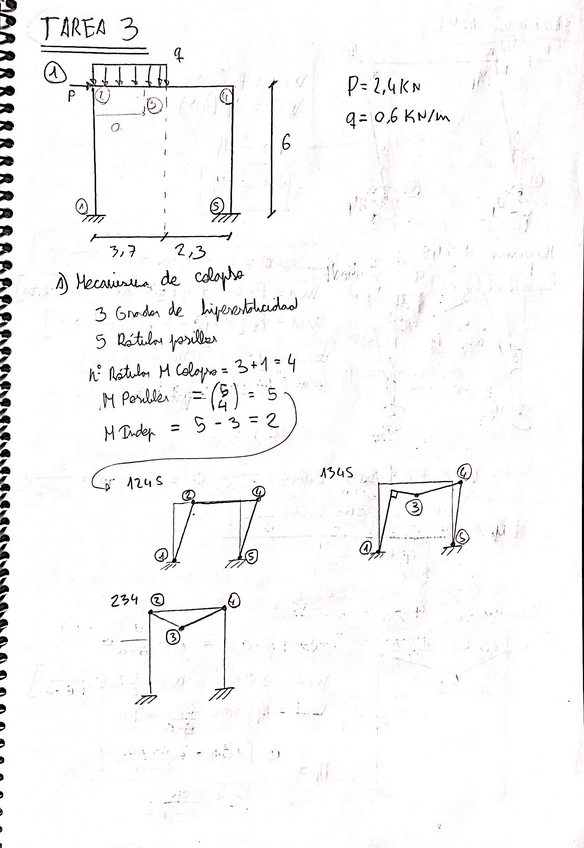 TAREA 3
①
q
P
②
③
④
a
①
⑤
6
3,7 2,3
P = 2,4 KN
q = 0,6 KN/m
1) Mecanismo de colapso
3 Grados de hiperestaticidad
5 Rótulas posibles
nº Rótulas M Colapso = 3+1 = 4
M Posibles = (5 4) = 5
M Indep = 5 - 3 = 2
1245
②
④
①
⑤
1345
④
③
①
⑤
234
②
④
③